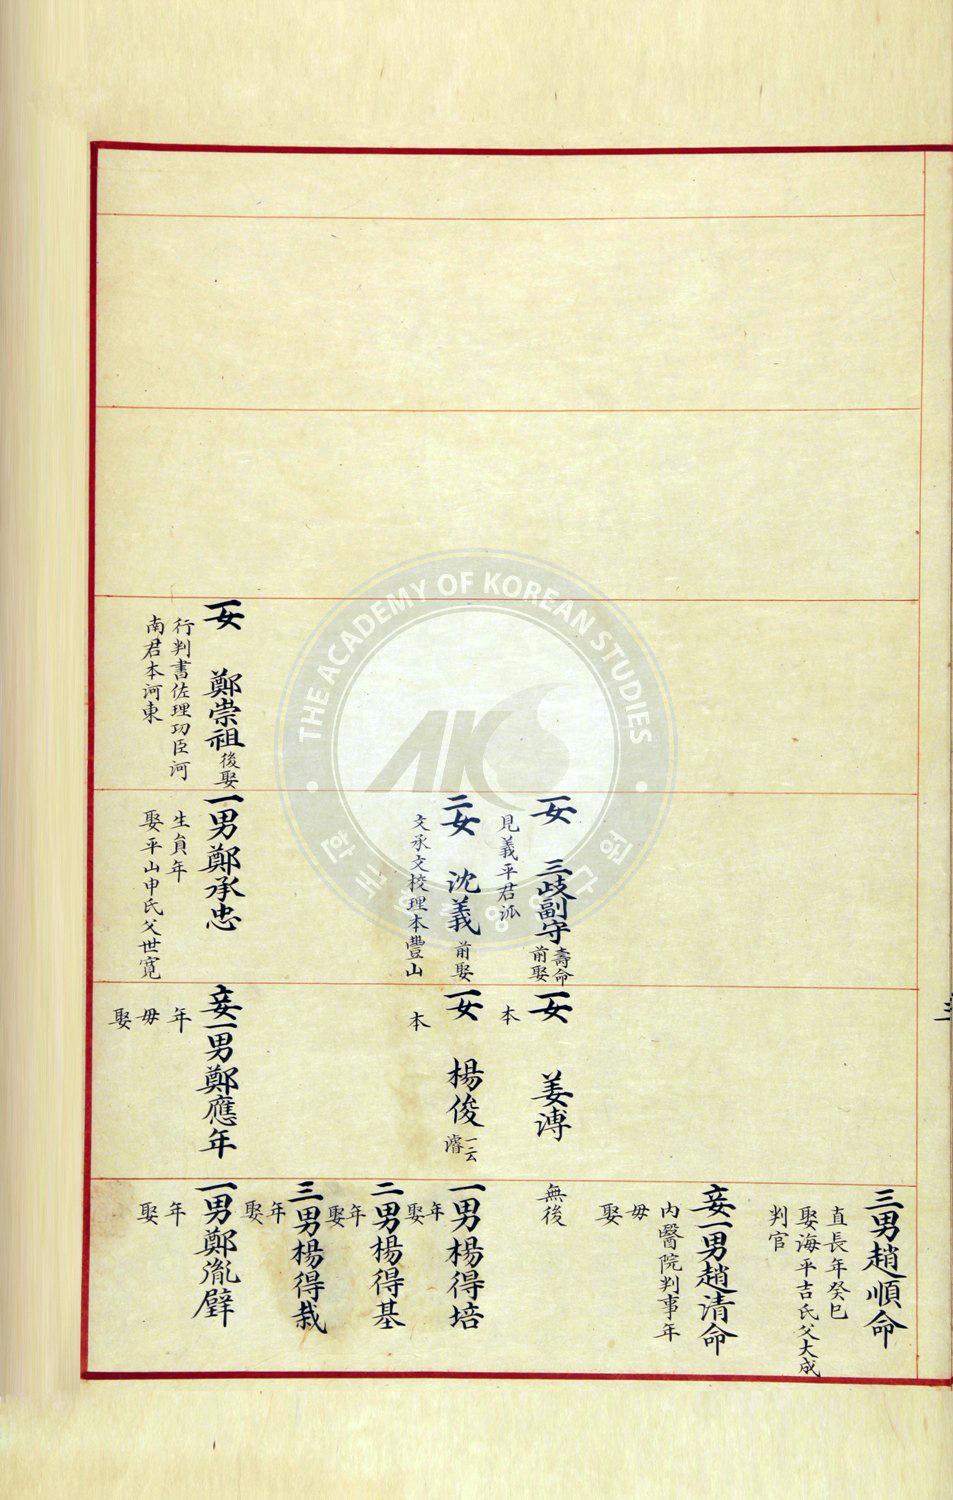 三男趙順命
直長年癸巳
娶海平吉氏父大成
判官
妾一男趙清命
內醫院判事年
毋
娶
一女 三岐副守壽命前娶
見義平君派
一女 姜溥
本
無後
二女 沈義前娶
文承文校理本豊山
一女 楊俊一云濬
本
一男楊得培
年
娶
二男楊得基
年
娶
三男楊得栽
年
娶
一女 鄭崇祖後娶
行判書佐理功臣河
南君本河東
一男鄭承忠
生員年
娶平山申氏父世寬
妾一男鄭應年
年
毋
娶
一男鄭胤壁
年
娶
THE ACADEMY OF KOREAN STUDIES
AKS